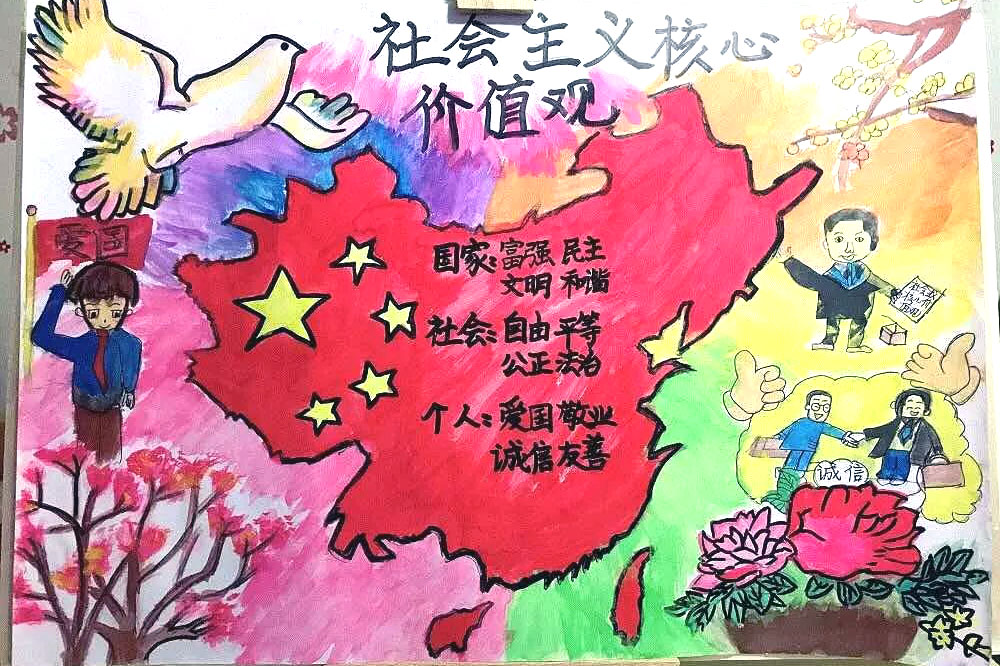 社会主义核心
价值观
爱国
国家:富强 民主
文明 和谐
社会:自由 平等
公正 法治
个人:爱国 敬业
诚信 友善
诚信